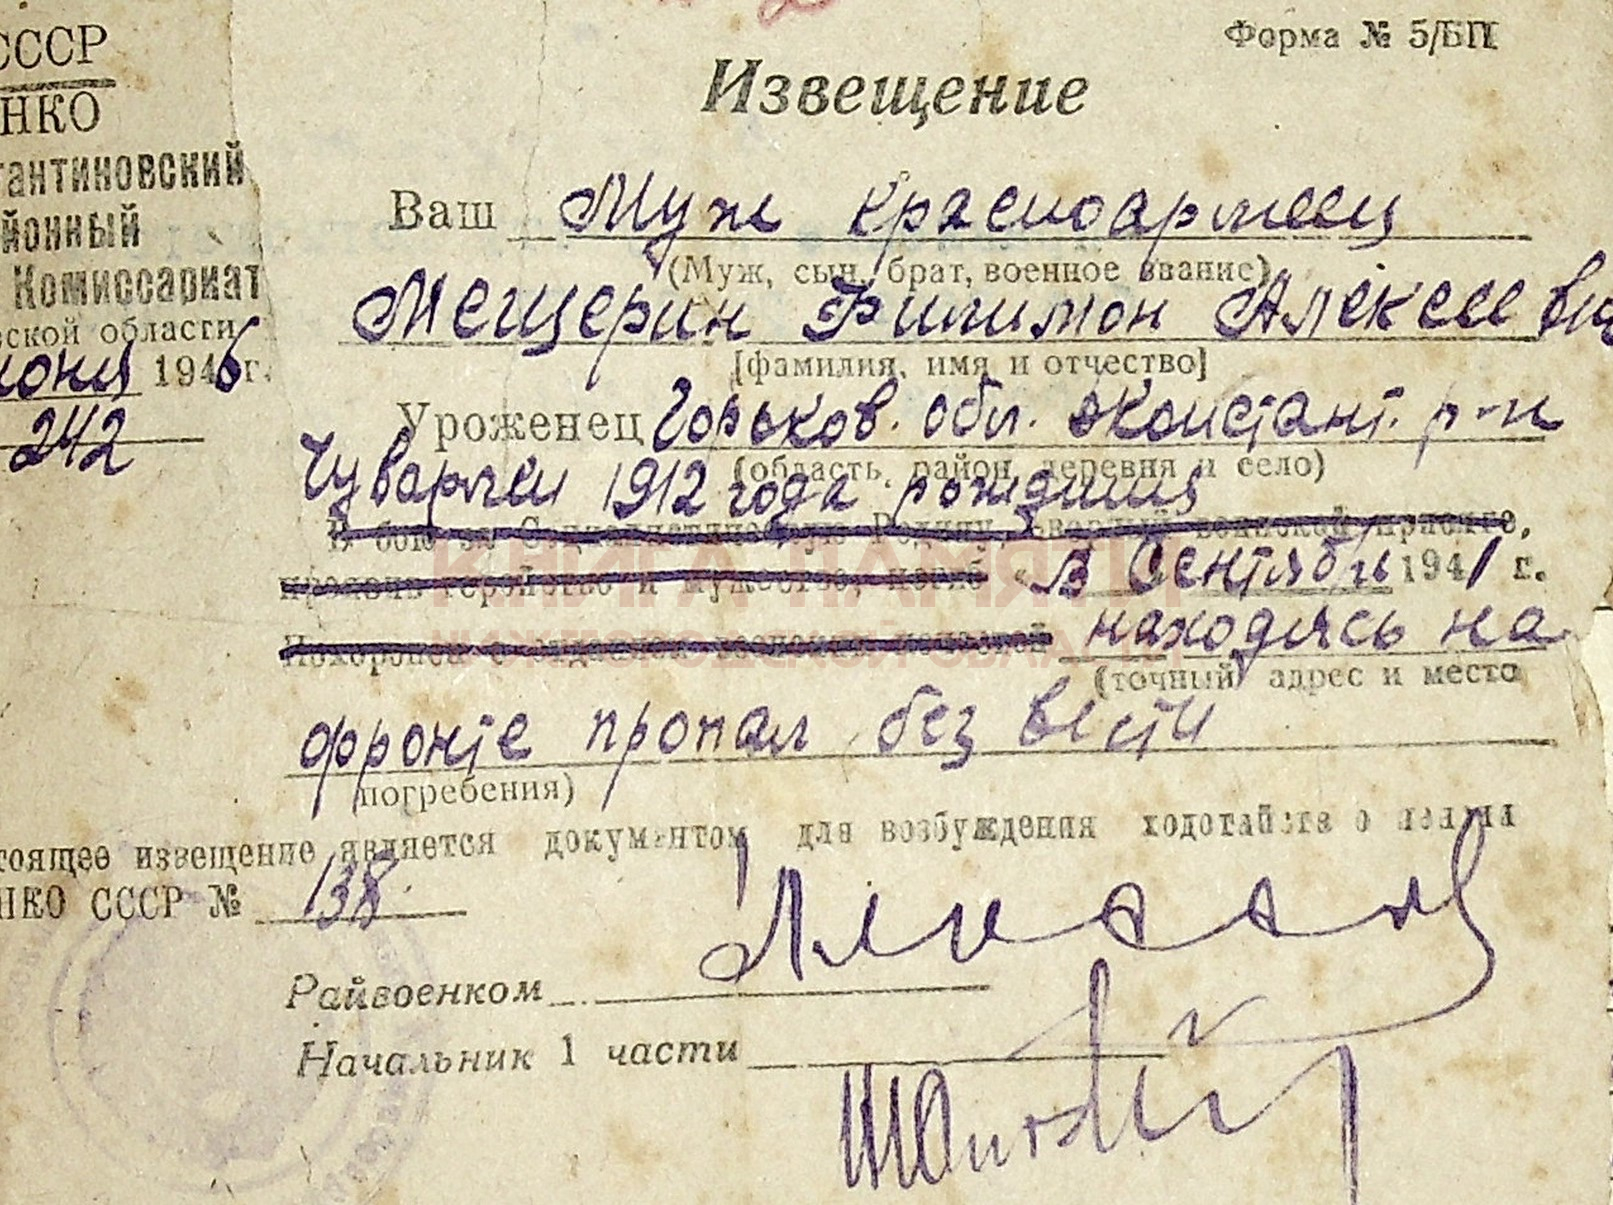 Форма № 5/БП
СССР
НКО
тантиновский
йонный
Комиссариат
ской области
июня 1946 г.
242
Извещение
Ваш Муж красноармеец
(Муж, сын, брат, военное звание)
Мещерин Филимон Алексеевич
[фамилия, имя и отчество]
Уроженец Горьков. обл. Констант. р-н
(область, район, деревня и село)
Чуварлеи 1912 года рождения
В бою за Социалистическую Родину, верный воинской присяге,
проявив геройство и мужество, погиб "в Сентябре 1941 г.
Похоронен с отданием воинских почестей находясь на
(точный адрес и место
фронте пропал без вести
погребения)
тоящее извещение является документом для возбуждения ходотайства о пенсии
НКО СССР № 138
Райвоенком
Начальник 1 части
КНИГА ПАМЯТИ
НИЖЕГОРОДСКОЙ ОБЛАСТИ